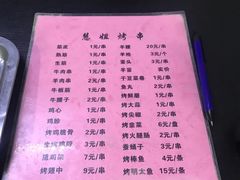 慧姐烤串
筋皮 1元/串 羊腰 20元/串
熟筋 1元/串 羊枪 3元/个
生筋 1元/串 蚕头 3元/串
羊肉串 1元/串 羊蛋 实价
牛肉串 1元/串 干豆腐卷 1元/串
牛板筋 1元/串 鱼丸 2元/串
牛腰子 2元/串 烤鲜蘑 1元/串
鸡心 1元/串 烤蒜 1元/串
鸡胗 1元/串 烤尖椒 2元/串
烤鸡脆骨 2元/串 烤韭菜 6元/盘
生烤鸡脖 3元/串 烤火腿肠 2元/串
鸡架 7元/串 蚕蛹子 2元/串
烤翅中 9元/串 烤棒鱼 4元/条
烤明太鱼 15元/条